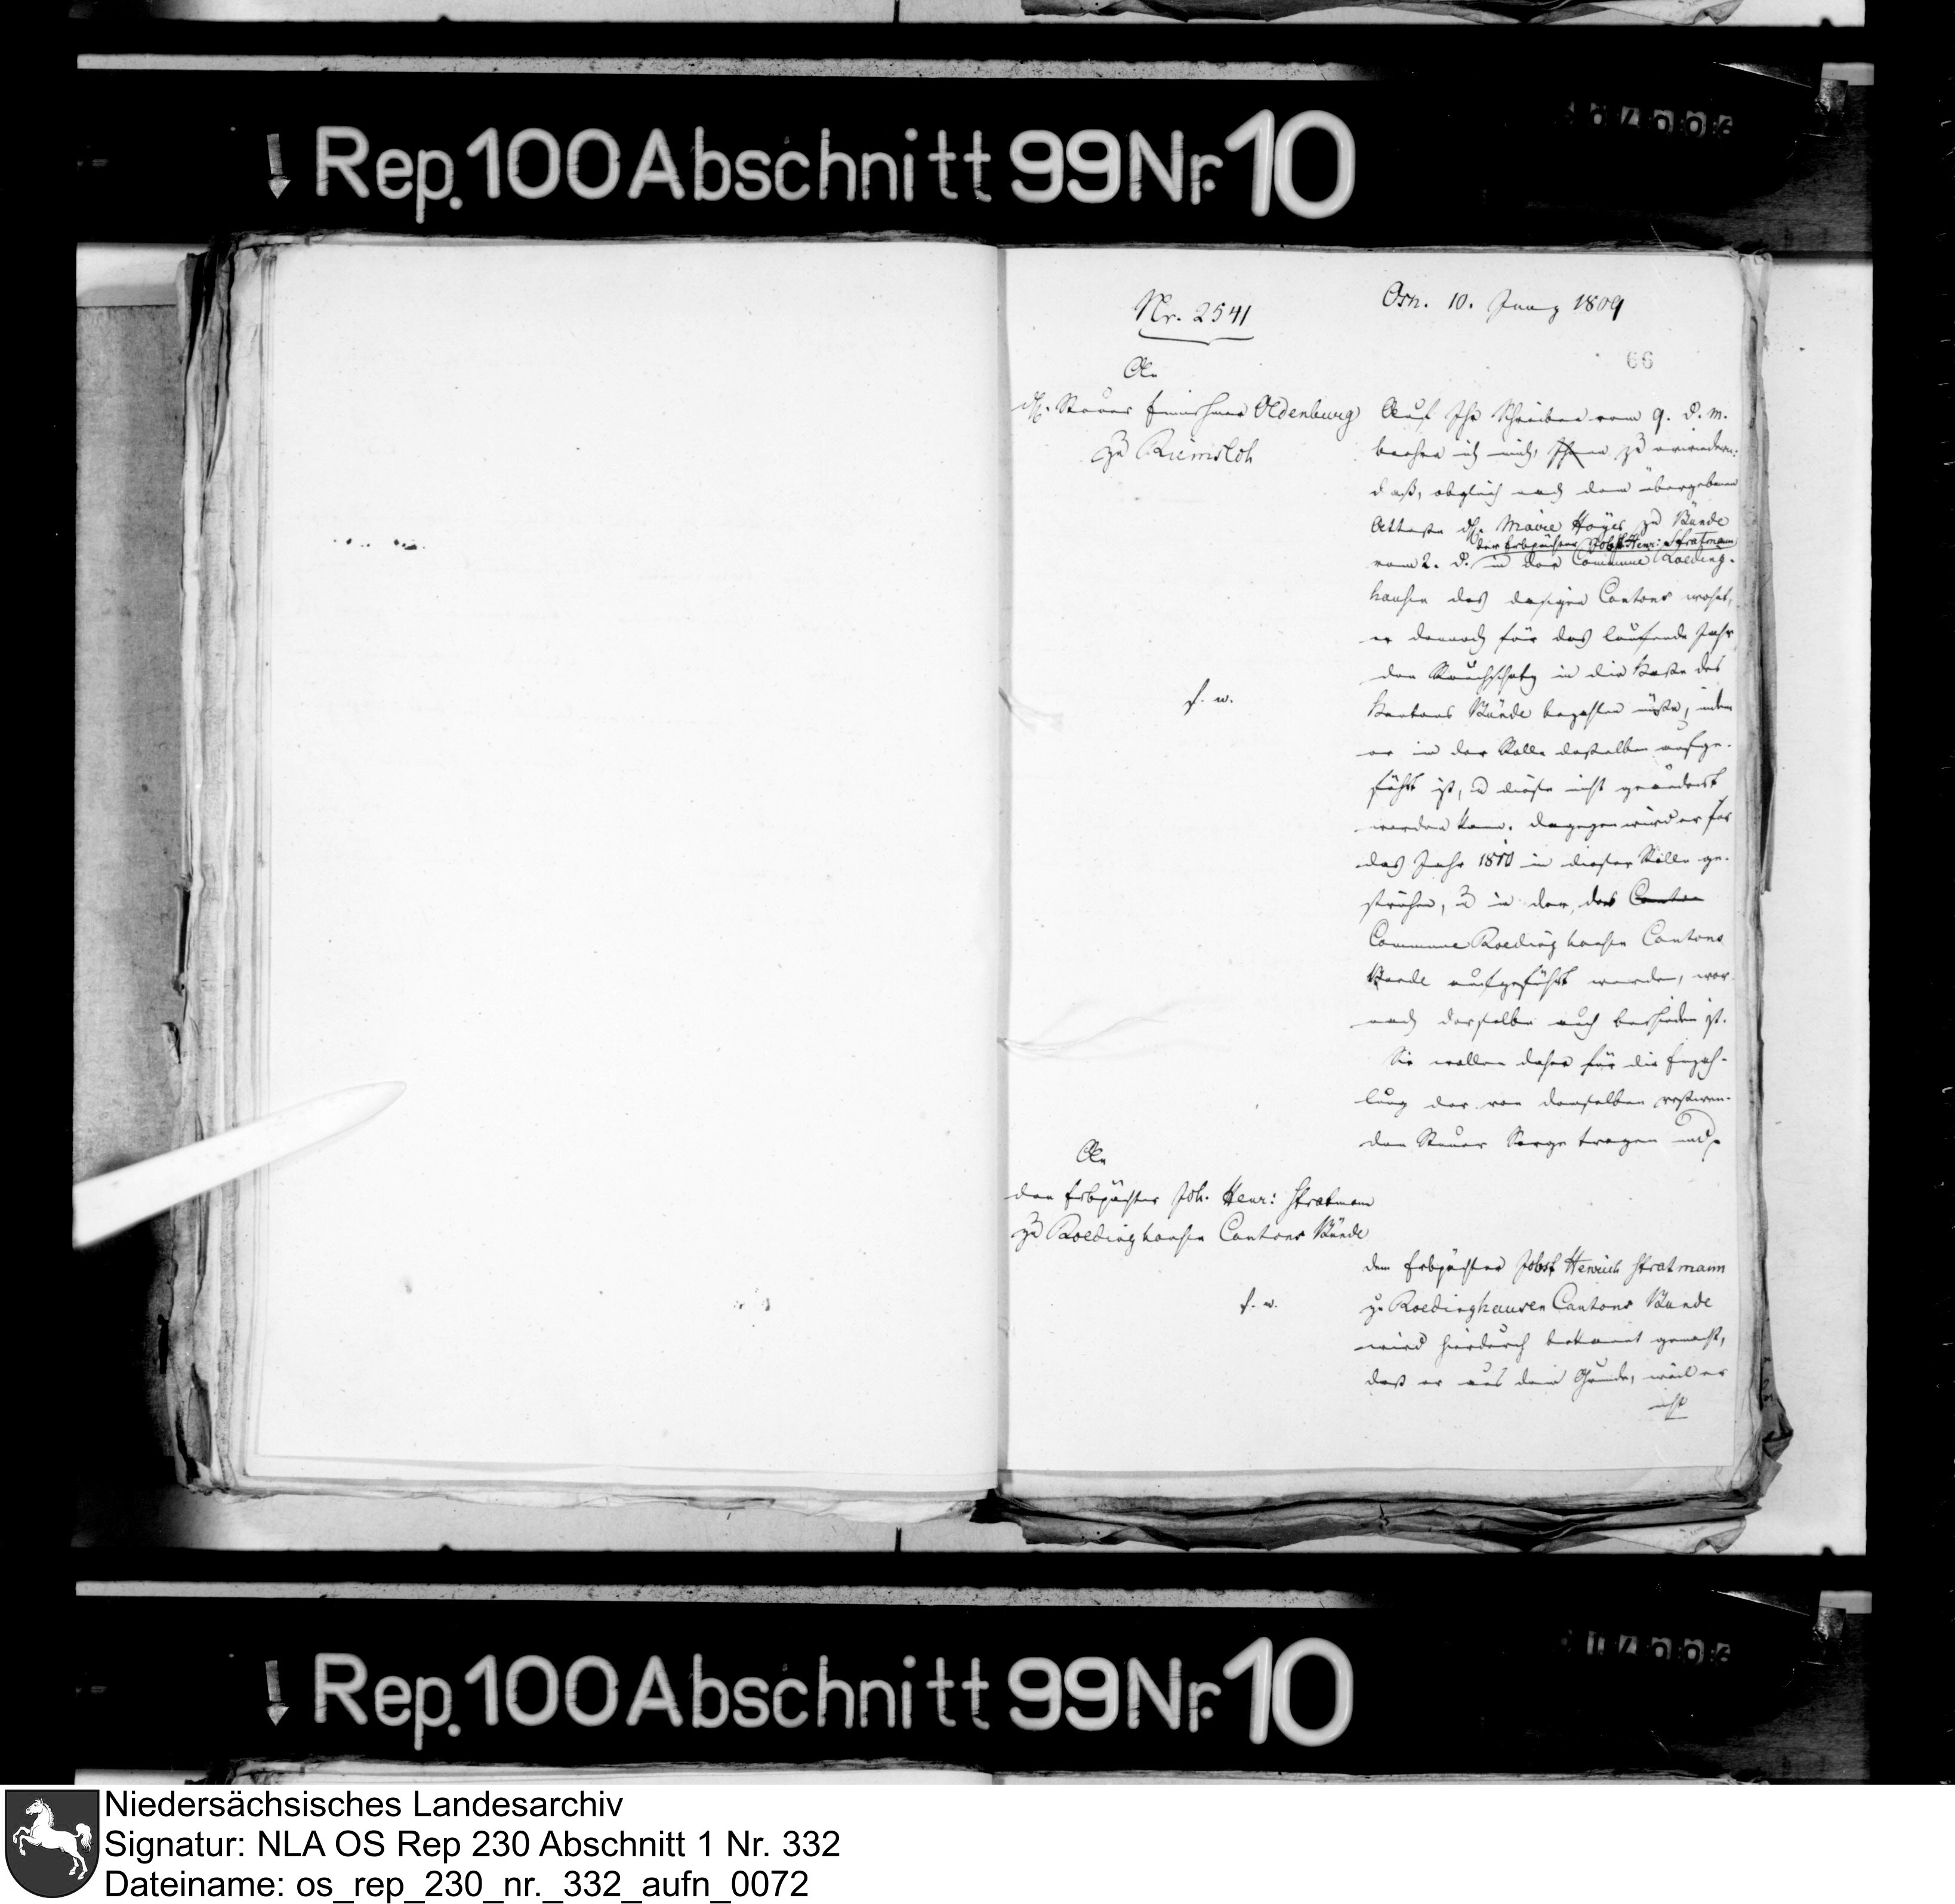 Rep. 100 Abschnitt 99 Nr. 10
Nr. 2541
Osn. 10. Juny 1809
66
An
H. Steuer Einnehmer Oldenburg
zu Riemsloh
Auf Ihr Schreiben vom 9. d. m.
beehre ich mich, Ihnen zu erwiedern:
daß, obgleich nach dem übergebenen
Atteste H. Maire Höyer zu Bünde
der Erbpächter Jobst Henr: Stratmann
vom 2. d. in der Commune Roeding-
hausen des dasigen Cantons wohnt,
er dennoch für das laufende Jahr
den Rauchschatz in die Kasse des
Kantons Bünde bezahlen müße, indem
er in der Rolle desselben aufge-
führt ist, u diese nicht geändert
werden kann. Dagegen wird er für
das Jahr 1810 in dieser Rolle ge-
strichen, u in der, des Canton
Commune Roedinghausen Cantons
Bünde aufgeführt werden, wor-
nach derselbe auch beschieden ist.
Sie wollen daher für die Einzah-
lung der von demselben
den Steuer Sorge tragen und
f. w.
An
den Erbpächter Joh. Henr: Stratmann
zu Roedinghausen Cantons Bünde
f. w.
dem Erbpächter Jobst Henrich Stratmann
zu Roedinghausen Cantons Bünde
wird hierdurch bekannt gemacht,
daß er aus dem Grunde, weil er
nicht
Rep. 100 Abschnitt 99 Nr. 10
Niedersächsisches Landesarchiv
Signatur: NLA OS Rep 230 Abschnitt 1 Nr. 332
Dateiname: os_rep_230_nr._332_aufn_0072